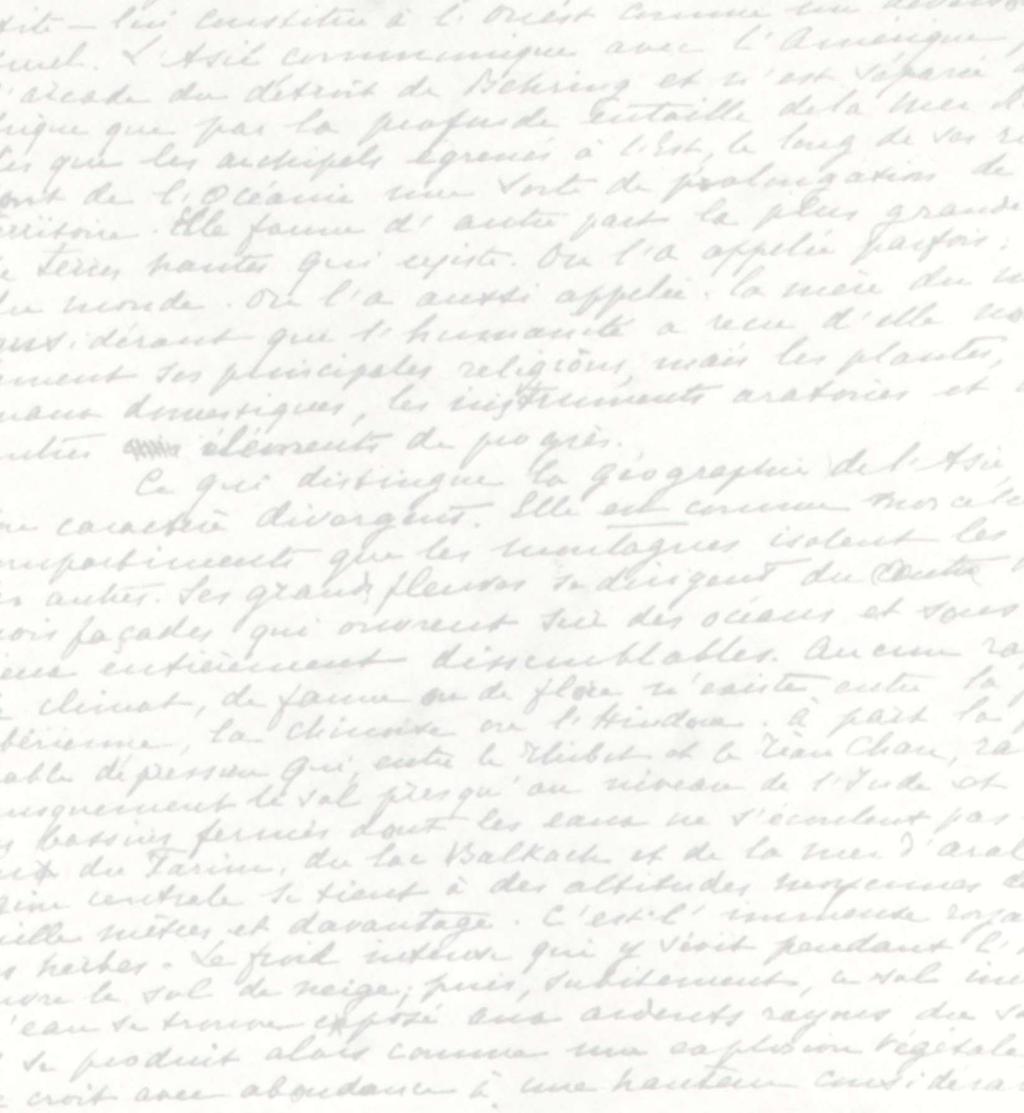 lui constitue à l'ouest comme un
L'Asie communique avec l'Amérique
du détroit de Béhring et n'est séparée
que par la profonde entaille de la mer
que les archipels égrenés à l'Est, le long de ses
de l'Océanie une sorte de prolongation de
Elle forme d'autre part la plus grande
terres hautes qui existe. On l'a appelée parfois :
du monde. On l'a aussi appelée : la mère du
que l'humanité a reçu d'elle
ses principales religions, mais les plantes,
domestiques, les instruments aratoires et
éléments de progrès.
Ce qui distingue la géographie de l'Asie
caractère divergent. Elle est comme
que les montagnes isolent les
autres. Ses grands fleuves se dirigent du Centre
façades qui ouvrent sur des océans et sous
entièrement dissemblables. Aucun
climat, de faune ou de flore n'existe entre la
la chinoise ou l'Hindoue. à part la
dépression qui, entre le Thibet et le Tian Chan,
le sol presqu'au niveau de l'Inde et
bassins fermés dont les eaux ne s'écoulent pas
du Tarim, du lac Balkach et de la mer d'aral
centrale se tient à des altitudes moyennes
mètres et davantage. C'est l'immense
herbes. Le froid intense qui y sévit pendant
le sol de neige ; puis, subitement, ce sol
l'eau se trouve exposé aux ardents rayons du
se produit alors comme une explosion végétale
croit avec abondance à une hauteur